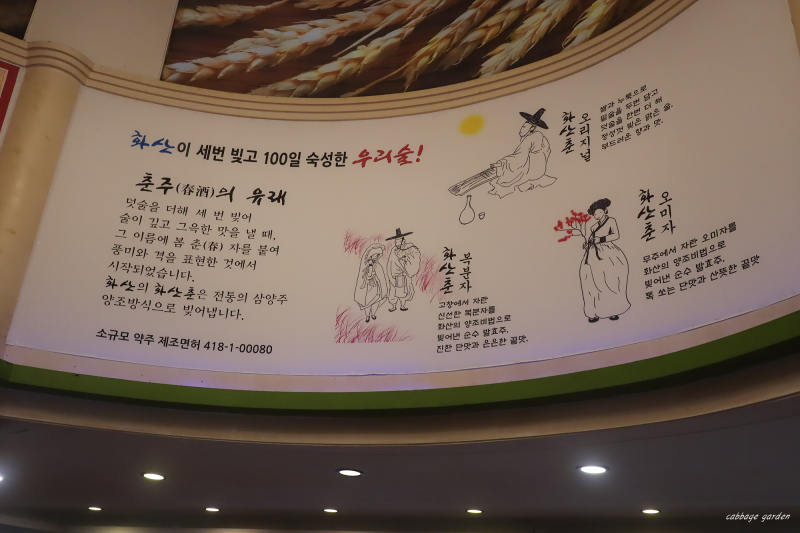 화산이 세번 빚고 100일 숙성한 우리술!
춘주(春酒)의 유래
덧술을 더해 세 번 빚어
술이 깊고 그윽한 맛을 낼 때,
그 이름에 봄 춘(春) 자를 붙여
풍미와 격을 표현한 것에서
시작되었습니다.
화산의 화산춘은 전통의 삼양주
양조방식으로 빚어냅니다.
소규모 약주 제조면허 418-1-00080
화산춘 오리지널
쌀과 누룩으로
밑술을 두번 담고
덧술을 한번 더 해
정성껏 빚은 맑은 술.
부드러운 향과 맛.
화산춘 복분자
고창에서 자란
신선한 복분자를
화산의 양조비법으로
빚어낸 순수 발효주.
진한 단맛과 은은한 끝맛.
화산춘 오미자
무주에서 자란 오미자를
화산의 양조비법으로
빚어낸 순수 발효주.
톡 쏘는 단맛과 산뜻한 끝맛
cabbage garden